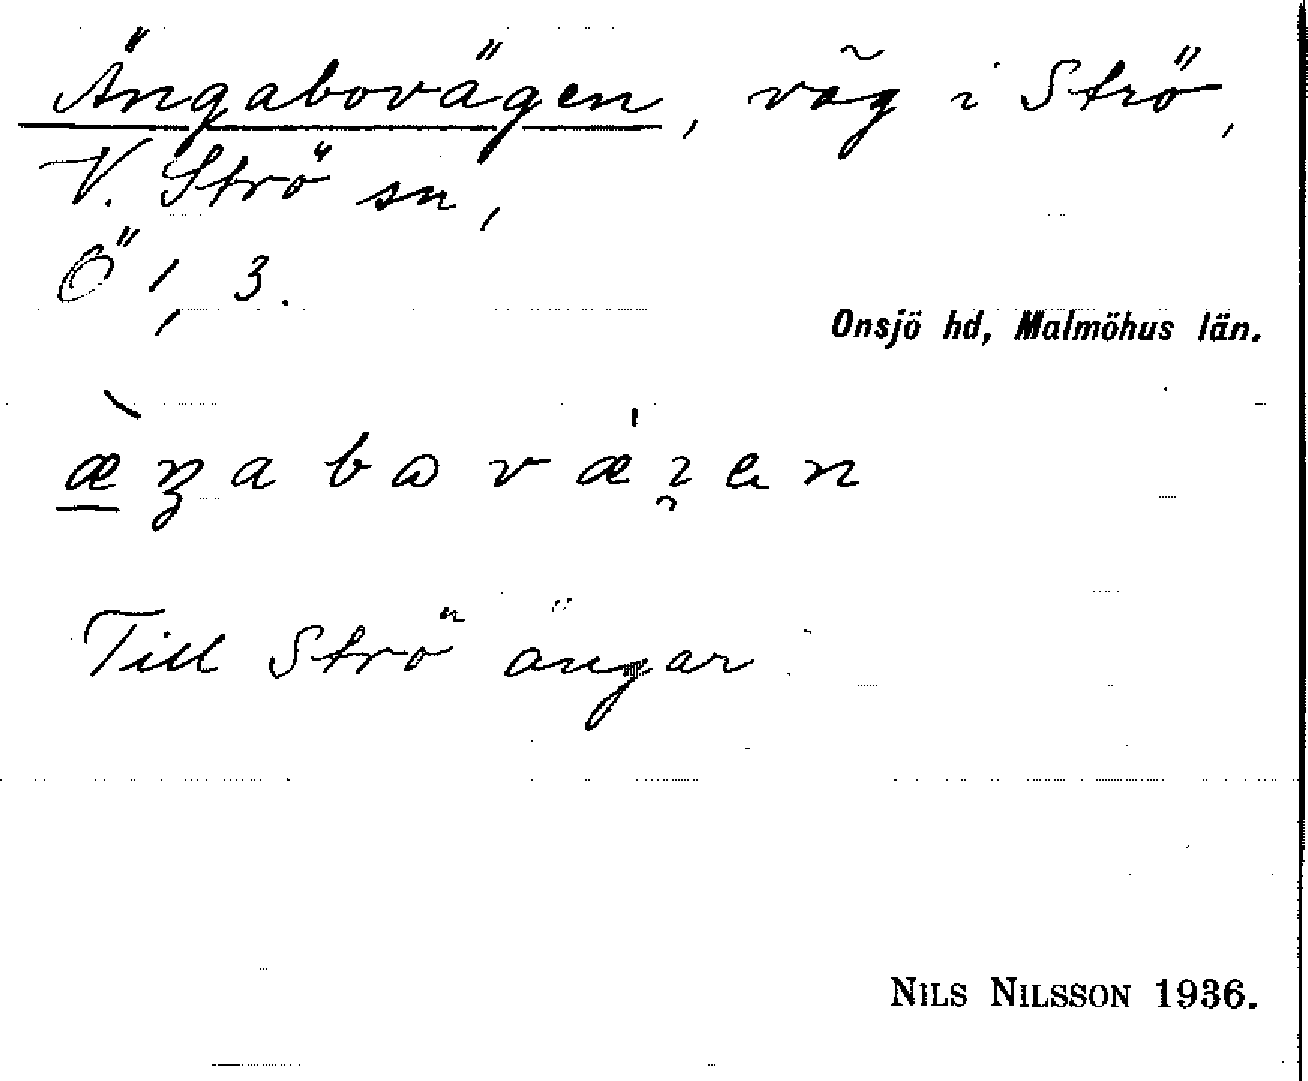 Ängabovägen, väg i Strö,
V. Strö sn,
Ö 1, 3.
Onsjö hd, Malmöhus län.
Till Strö ängar
NILS NILSSON 1936.